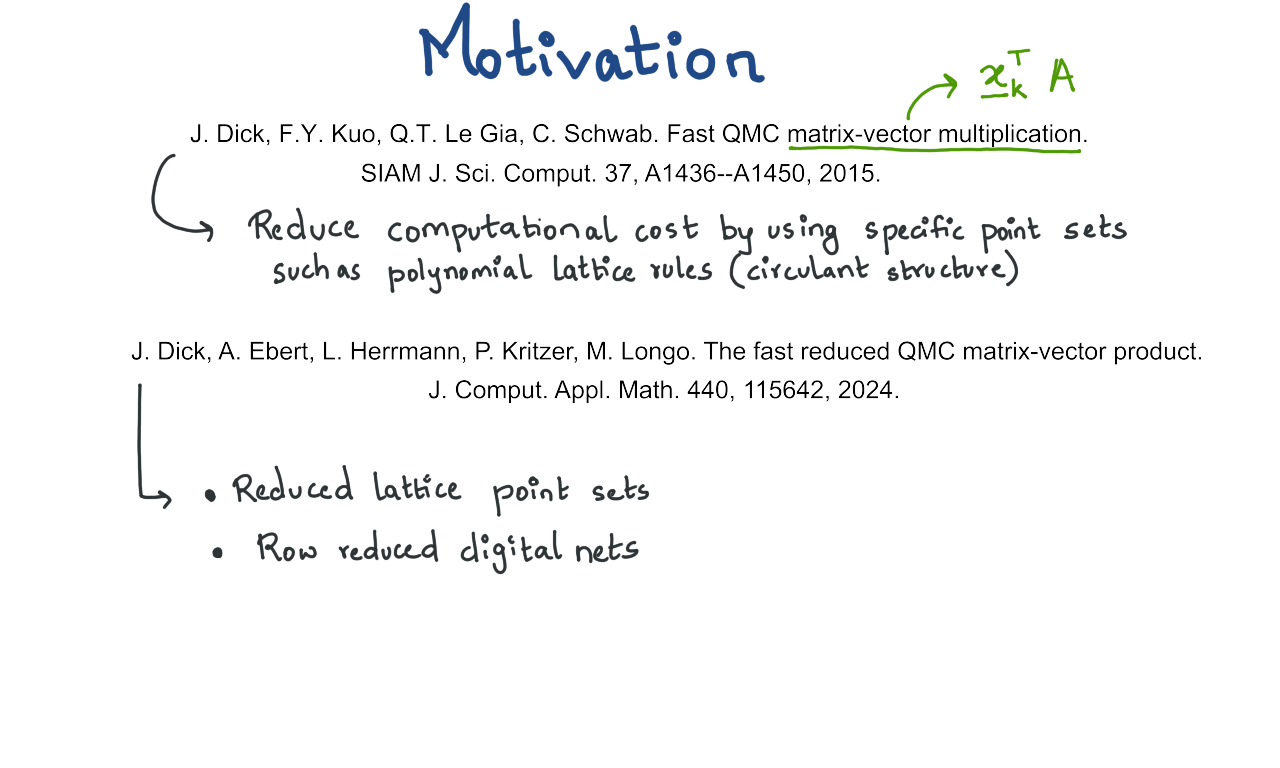 Motivation
x_k^T A
J. Dick, F.Y. Kuo, Q.T. Le Gia, C. Schwab. Fast QMC matrix-vector multiplication.
SIAM J. Sci. Comput. 37, A1436--A1450, 2015.
Reduce computational cost by using specific point sets
such as polynomial lattice rules (circulant structure)
J. Dick, A. Ebert, L. Herrmann, P. Kritzer, M. Longo. The fast reduced QMC matrix-vector product.
J. Comput. Appl. Math. 440, 115642, 2024.
• Reduced lattice point sets
• Row reduced digital nets